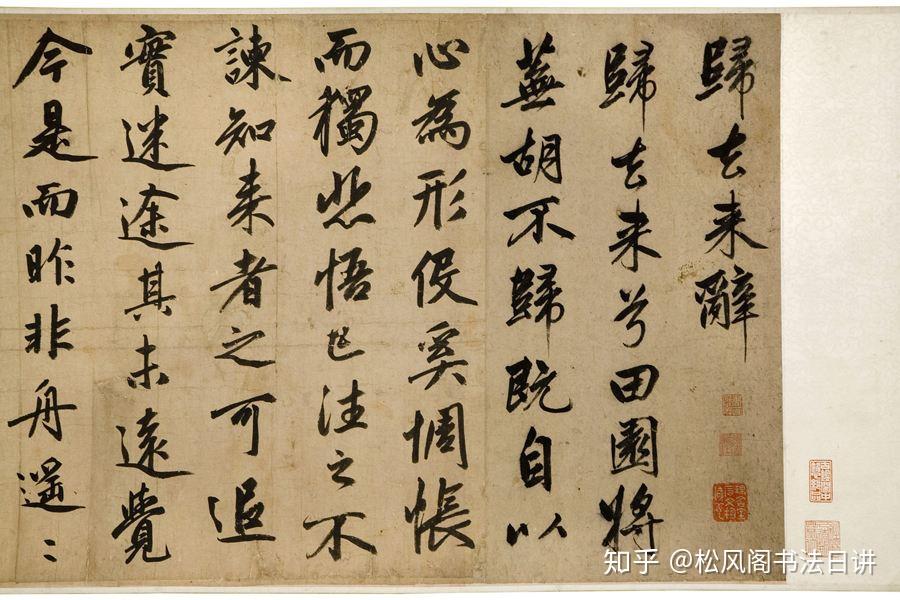 歸去来辭
歸去来兮田園將
蕪胡不歸既自以
心為形伇奚惆悵
而獨悲悟已往之不
諫知来者之可追
實迷途其未遠覺
今是而昨非舟遥〻
知乎 @松风阁书法日讲